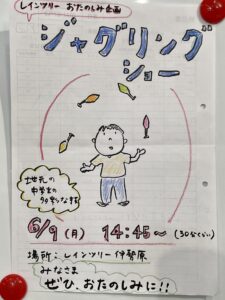 レインツリー おたのしみ企画
ジャグリング
ショー
地元の
中学生の
6/9(月) 14:45〜(30分くらい)
場所:レインツリー伊勢原
みなさま
ぜひ、おたのしみに!!